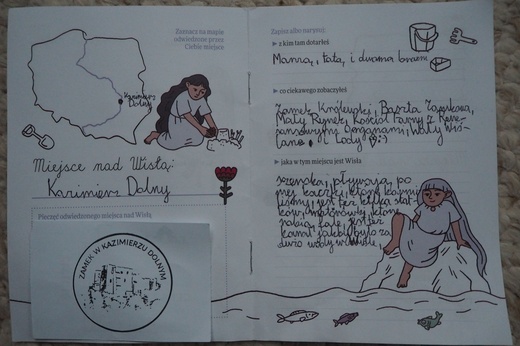 Zaznacz na mapie
odwiedzone przez
Ciebie miejsce
Kazimierz
Dolny
Miejsce nad Wisłą:
Kazimierz Dolny
Pieczęć odwiedzonego miejsca nad Wisłą
ZAMEK W KAZIMIERZU DOLNYM
Zapisz albo narysuj:
z kim tam dotarłeś
Mamą, tatą i dwoma braćmi
co ciekawego zobaczyłeś
Zamek Królewski, Baszta
Mały Rynek, Kościół Farny z
Organami, Wały
Lody
jaka w tym miejscu jest Wisła
szeroka, pływają po
niej kaczki, które
jest też kilka
które
jest też
było za
wody w Wiśle